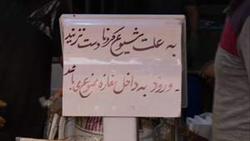 به علت شیوع کرونا دست نزنید
. ورود به داخل مغازه ممنوع می باشد